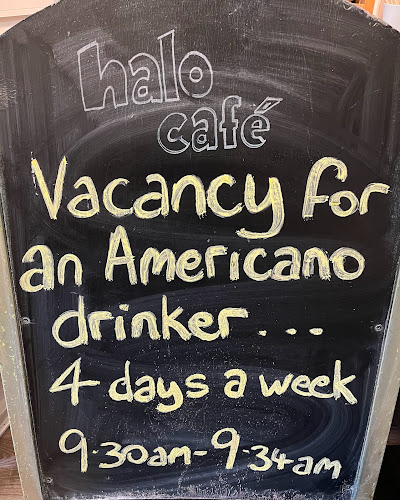 halo
café
Vacancy for
an Americano
drinker...
4 days a week
9.30am-9.34am